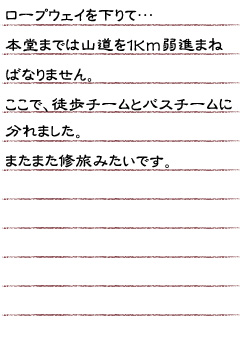 ロープウェイを下りて…
本堂までは山道を1Km弱進まね
ばなりません。
ここで、徒歩チームとバスチームに
分れました。
またまた修旅みたいです。